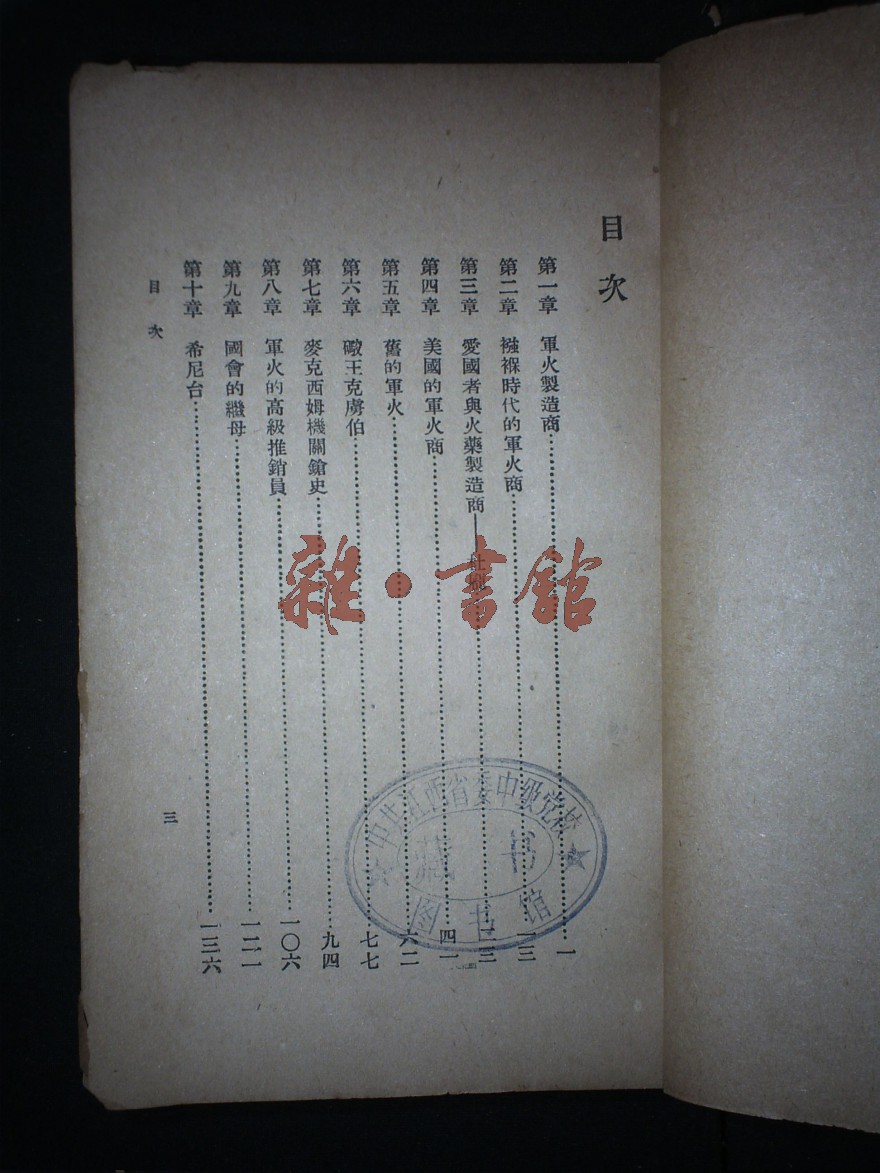 目次
第一章 軍火製造商………一
第二章 襁褓時代的軍火商………一三
第三章 愛國者與火藥製造商——杜………二三
第四章 美國的軍火商………四一
第五章 舊的軍火………六二
第六章 礮王克虜伯………七七
第七章 麥克西姆機關鎗史………九四
第八章 軍火的高級推銷員………一〇六
第九章 國會的繼母………一二一
第十章 希尼台………一三六
目次
三
中共江西省委中级党校
藏书
图书馆
雜·書館